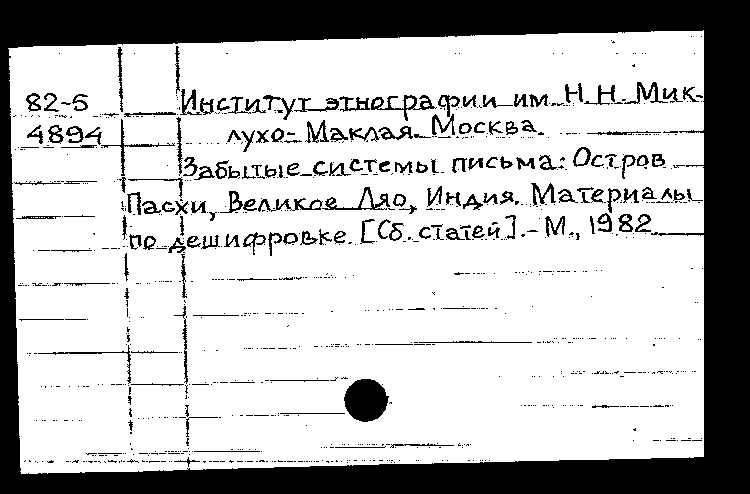 82-5 Институт этнографии им. Н.Н. Мик-
4894 лухо-Маклая. Москва.
Забытые системы письма: Остров
Пасхи, Великое Ляо, Индия. Материалы
по дешифровке. [Сб. статей]. - М., 1982